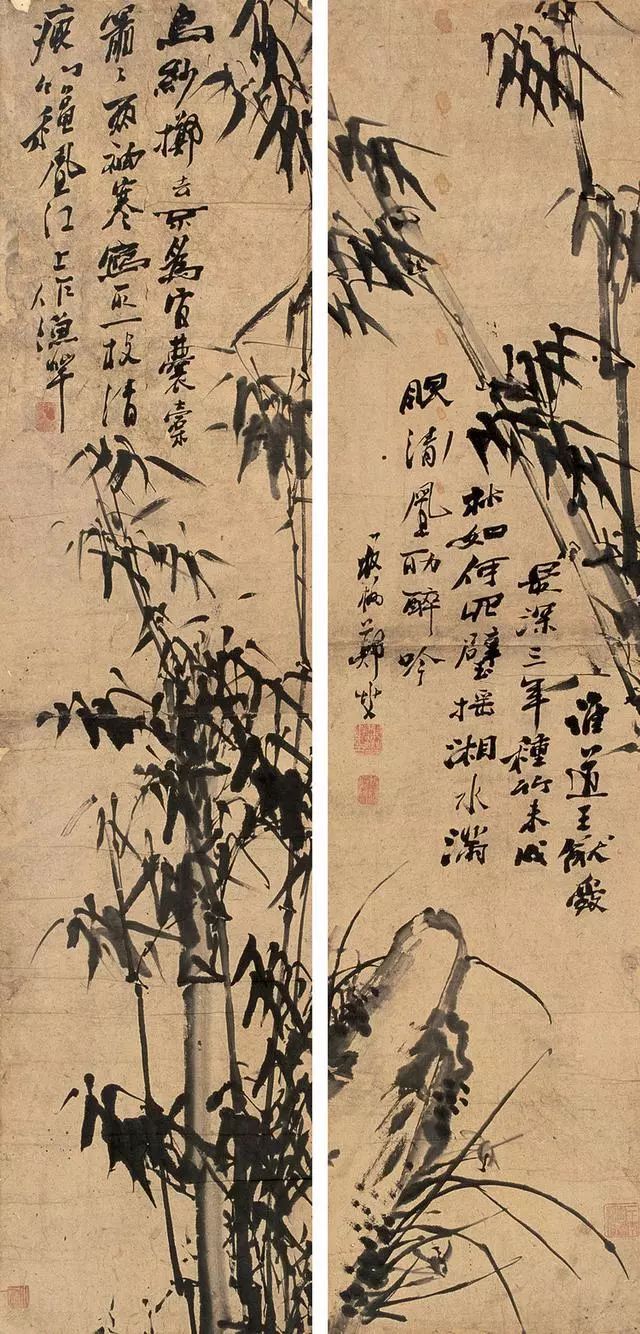 誰道王猷愛
最深三年種竹未成
林如何壁搖湘水滿
眼清風助醉吟
板橋鄭燮
烏紗擲去不為官囊橐
蕭〻兩袖寒寫取一枝清
瘦竹秋風江上作漁竿